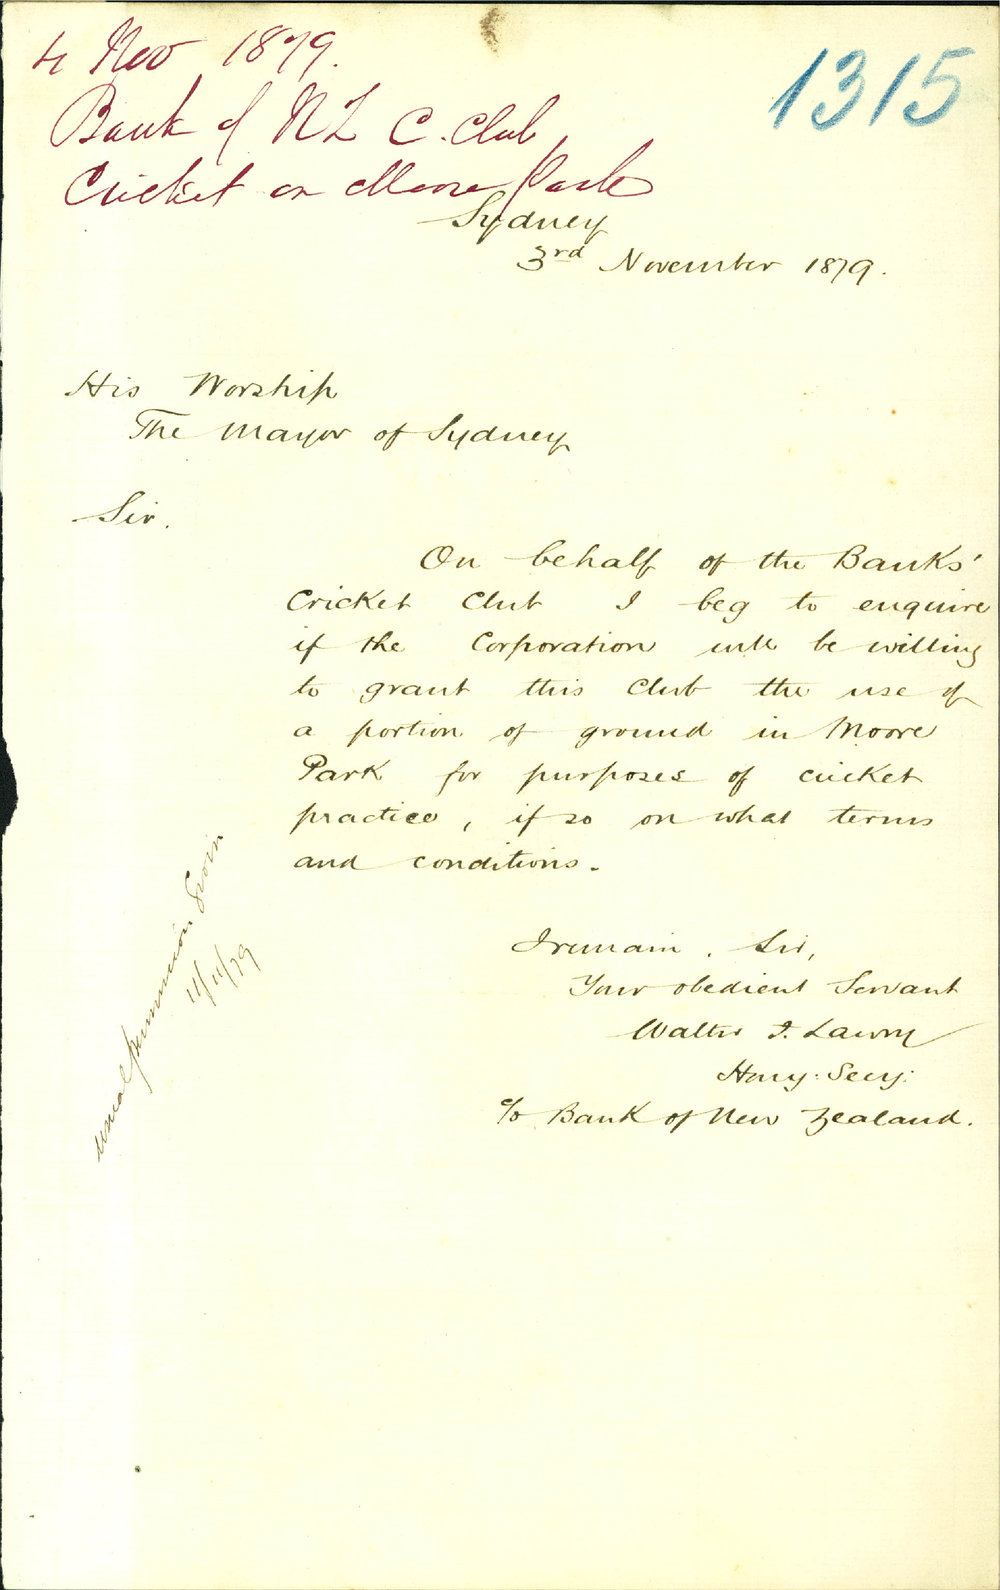 4 Nov 1879.
1315
Bank of NZ C. Club
Cricket on Moore Park
Sydney
3rd November 1879.
His Worship
The Mayor of Sydney
Sir.
On behalf of the Banks'
Cricket Club I beg to enquire
if the Corporation will be willing
to grant this Club the use of
a portion of ground in Moore
Park for purposes of cricket
practice, if so on what terms
and conditions.
I remain, Sir,
Your obedient Servant
Walter I. Lawry
Hony. Secy.
c/o Bank of New Zealand.
usual permission
11/11/79